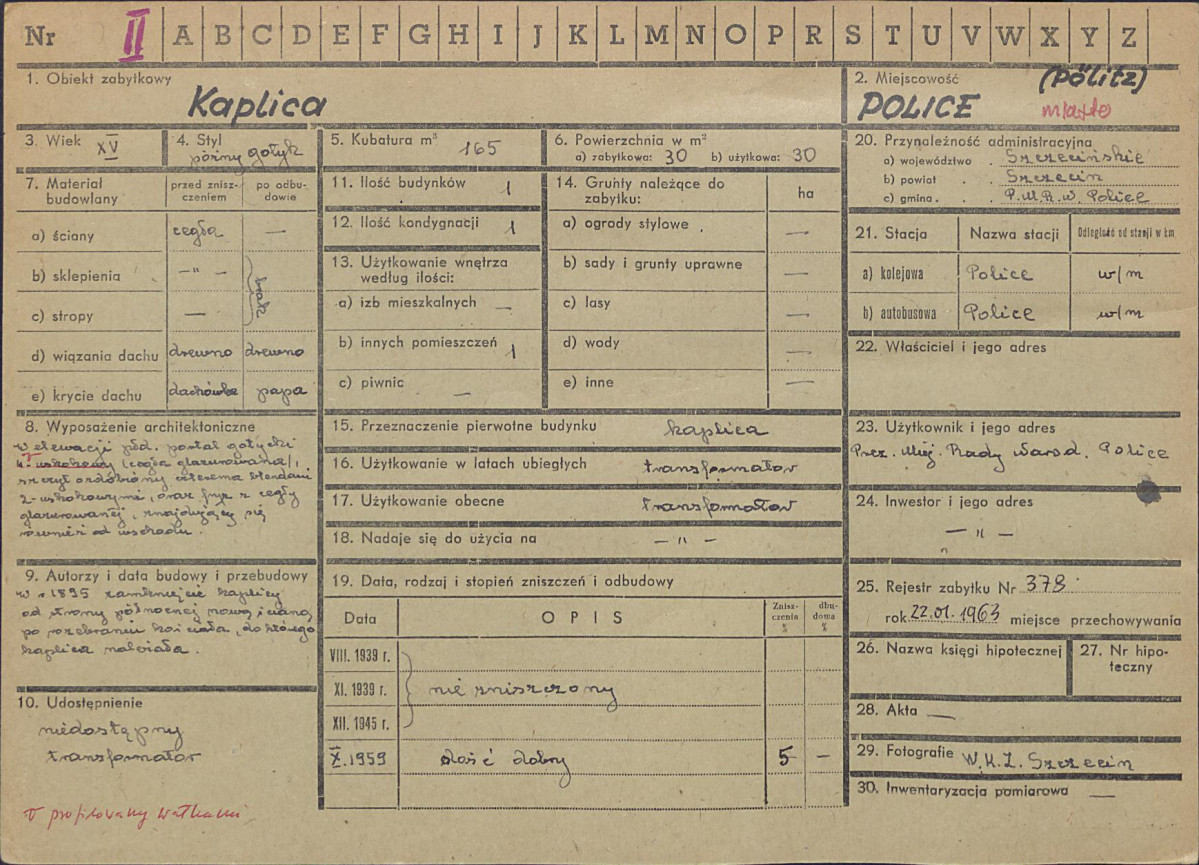 Nr II A B C D E F G H I J K L M N O P R S T U V W X Y Z
1. Obiekt zabytkowy
Kaplica
2. Miejscowość (Pölitz)
POLICE miasto
3. Wiek XV
4. Styl
późny gotyk
5. Kubatura m³ 165
6. Powierzchnia w m²
a) zabytkowa: 30 b) użytkowa: 30
7. Materiał budowlany
przed zniszczeniem
po odbudowie
a) ściany cegła —
b) sklepienia —"— brak
c) stropy —
d) wiązania dachu drewno drewno
e) krycie dachu dachówka papa
8. Wyposażenie architektoniczne
w elewacji płd. portal gotycki
uskokowy (cegła glazurowana),
szczyt ozdobiony czterema blendami
2-uskokowymi, oraz fryz z cegły
glazurowanej, znajdujący się
również od wschodu.
9. Autorzy i data budowy i przebudowy
w r 1895 zamknięcie kaplicy
od strony północnej nową ścianą
po rozebraniu kościoła, do którego
kaplica należała.
10. Udostępnienie
niedostępny
transformator
v profilowany wałkami
11. Ilość budynków 1
12. Ilość kondygnacji 1
13. Użytkowanie wnętrza
według ilości:
a) izb mieszkalnych —
b) innych pomieszczeń 1
c) piwnic —
14. Grunty należące do
zabytku: ha
a) ogrody stylowe . —
b) sady i grunty uprawne —
c) lasy —
d) wody —
e) inne —
15. Przeznaczenie pierwotne budynku kaplica
16. Użytkowanie w latach ubiegłych transformator
17. Użytkowanie obecne transformator
18. Nadaje się do użycia na — " —
19. Data, rodzaj i stopień zniszczeń i odbudowy
Data OPIS Zniszczenia % dbudowa %
VIII. 1939 r.
XI. 1939 r. nie zniszczony
XII. 1945 r.
X. 1959 dość dobry 5 —
20. Przynależność administracyjna
a) województwo . Szczecińskie
b) powiat . . Szczecin
c) gmina . . P.M.R.N. Police
21. Stacja Nazwa stacji Odległość od stacji w km
a) kolejowa Police w/m
b) autobusowa Police w/m
22. Właściciel i jego adres
23. Użytkownik i jego adres
Prez. Miej. Rady Narod. Police
24. Inwestor i jego adres
— " —
25. Rejestr zabytku Nr 378
rok 22.01.1963 miejsce przechowywania
26. Nazwa księgi hipotecznej
27. Nr hipoteczny
28. Akta —
29. Fotografie W.K.Z. Szczecin
30. Inwentaryzacja pomiarowa —